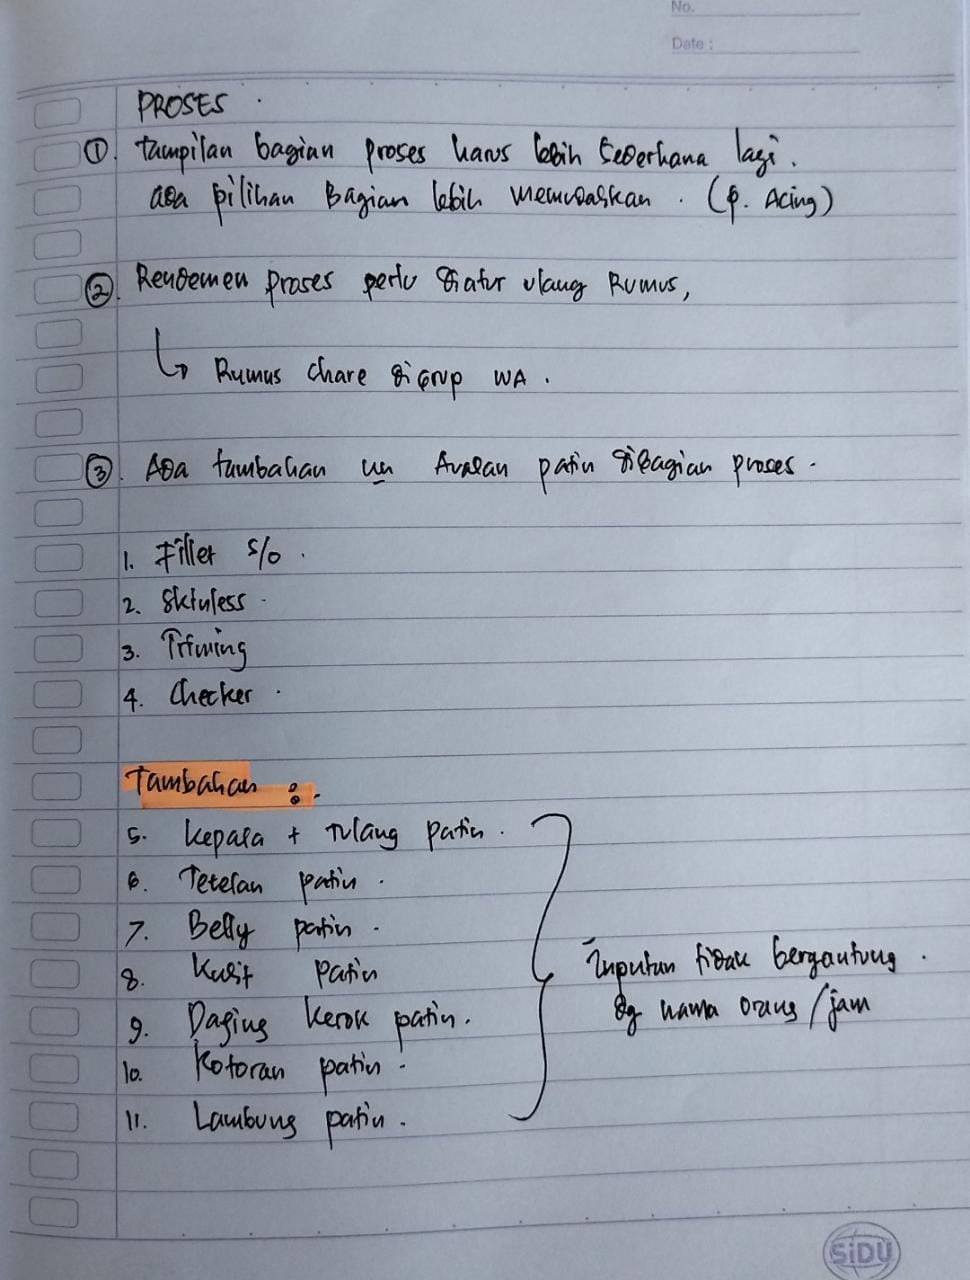 No.
Date :
PROSES .
① . tampilan bagian proses harus lebih sederhana lagi .
ada pilihan Bagian lebih memudahkan . (p. Acing)
② . Rendemen proses perlu diatur ulang Rumus,
↳ Rumus share di grup WA .
③ . Ada tambahan un Avalan patin dibagian proses .
1. Fillet s/o .
2. Skinless .
3. Triming
4. Checker .
Tambahan : .
5. Kepala + Tulang patin .
6. Tetelan patin .
7. Belly patin .
8. Kulit patin
9. Daging kerok patin .
10. Kotoran patin .
11. Lambung patin .
Inputan tidak bergantung .
dg nama orang / jam
SiDU